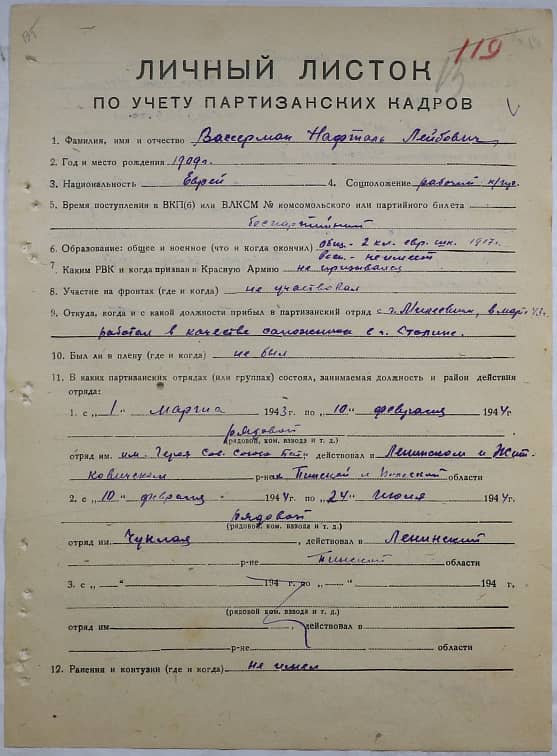 119
ЛИЧНЫЙ ЛИСТОК
ПО УЧЕТУ ПАРТИЗАНСКИХ КАДРОВ
1. Фамилия, имя и отчество Вассерман Нафталь Лейбович
2. Год и место рождения 1909г.
3. Национальность Еврей 4. Соцположение рабочий
5. Время поступления в ВКП(б) или ВЛКСМ № комсомольского или партийного билета
беспартийный
6. Образование: общее и военное (что и когда окончил) общ. - 2 кл. евр. шк. 1917г.
воен. - не имеет
7. Каким РВК и когда призван в Красную Армию не призывался
8. Участие на фронтах (где и когда) не участвовал
9. Откуда, когда и с какой должности прибыл в партизанский отряд с г. в март 43г.
работал в качестве сапожника в г.
10. Был ли в плену (где и когда) не был
11. В каких партизанских отрядах (или группах) состоял, занимаемая должность и район действия
отряда:
1. с „1" марта 1943г. по „10" февраля 1944г.
рядовой
(рядовой, ком. взвода и т. д.)
отряд им. Героя Сов. Союза действовал в Ленинском и Жит-
ковичском р-нах Пинской и Полесской области
2. с „10" февраля 1944г. по „24" июня 1944г.
рядовой
(рядовой, ком. взвода и т. д.)
отряд им. Чуклая, действовал в Ленинский
р-не Пинской области
3. с „—" 194 г. по „—" 194 г.
(рядовой ком. взвода и т. д.)
отряд им. , действовал в
р-не области
12. Ранения и контузии (где и когда) не имел